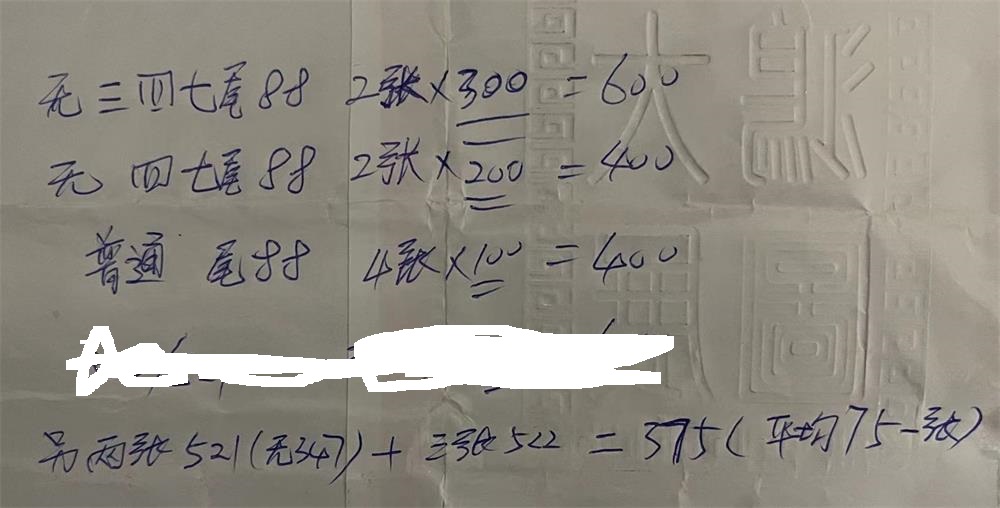 无三四七尾88 2张×300=600
无 四七尾88 2张×200=400
普通 尾88 4张×100=400
另两张521(无347)+三张522=375(平均75一张)